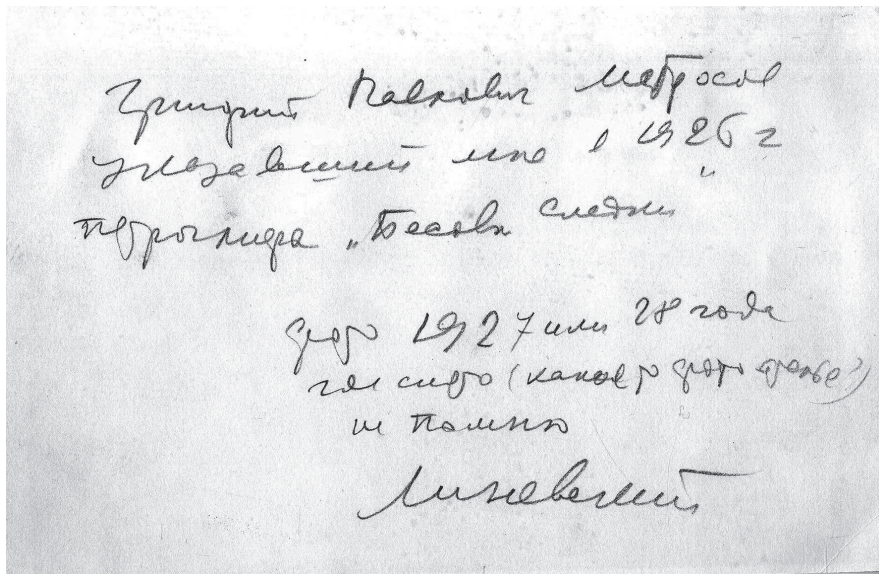 Григорий Павлович Матросов
указавший мне в 1926 г
петроглифы „Бесовы Следки"
фото 1927 или 28 года
где снято (какое то фото ателье?)
не помню
Линевский